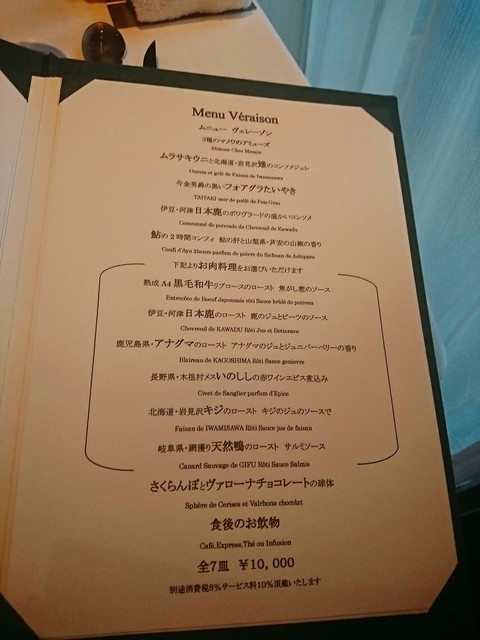 Menu Véraison
ムニュー ヴェレーゾン
3種のマノワのアミューズ
3Amuse Chez Manoir
ムラサキウニと北海道・岩見沢雉のコンソメジュレ
Oursin et gelé de Faisan de Iwamisawa
今金男爵の黒いフォアグラたいやき
TAIYAKI noir de poêlé de Foie Gras
伊豆・河津日本鹿のポワヴラードの温かいコンソメ
Consommé de poivrade de Chevreuil de Kawadu
鮎の2時間コンフィ 鮎の肝と山梨県・芦安の山椒の香り
Confi d'Ayu 2heurs parfum de poivre du Sichuan de Ashiyasu
下記よりお肉料理をお選びいただけます
熟成 A4 黒毛和牛リブロースのロースト 焦がし葱のソース
Entrecôte de Boeuf Japonnais rôti Sauce brûlé de poireau
伊豆・河津日本鹿のロースト 鹿のジュとビーツのソース
Chevreuil de KAWADU Rôti Jus et Betterave
鹿児島県・アナグマのロースト アナグマのジュとジュニパーベリーの香り
Blaireau de KAGOSHIMA Rôti Sauce genievre
長野県・木祖村メスいのししの赤ワインエピス煮込み
Civet de Sanglier parfum d'Epice
北海道・岩見沢キジのロースト キジのジュのソースで
Faisan de IWAMISAWA Rôti Sauce jus de faisan
岐阜県・網獲り天然鴨のロースト サルミソース
Canard Sauvage de GIFU Rôti Sauce Salmis
さくらんぼとヴァローナチョコレートの球体
Sphère de Cerises et Valrhona chocolat
食後のお飲物
Café,Express,Thé ou Infusion
全7皿 ¥10,000
別途消費税8%サービス料10%頂戴いたします